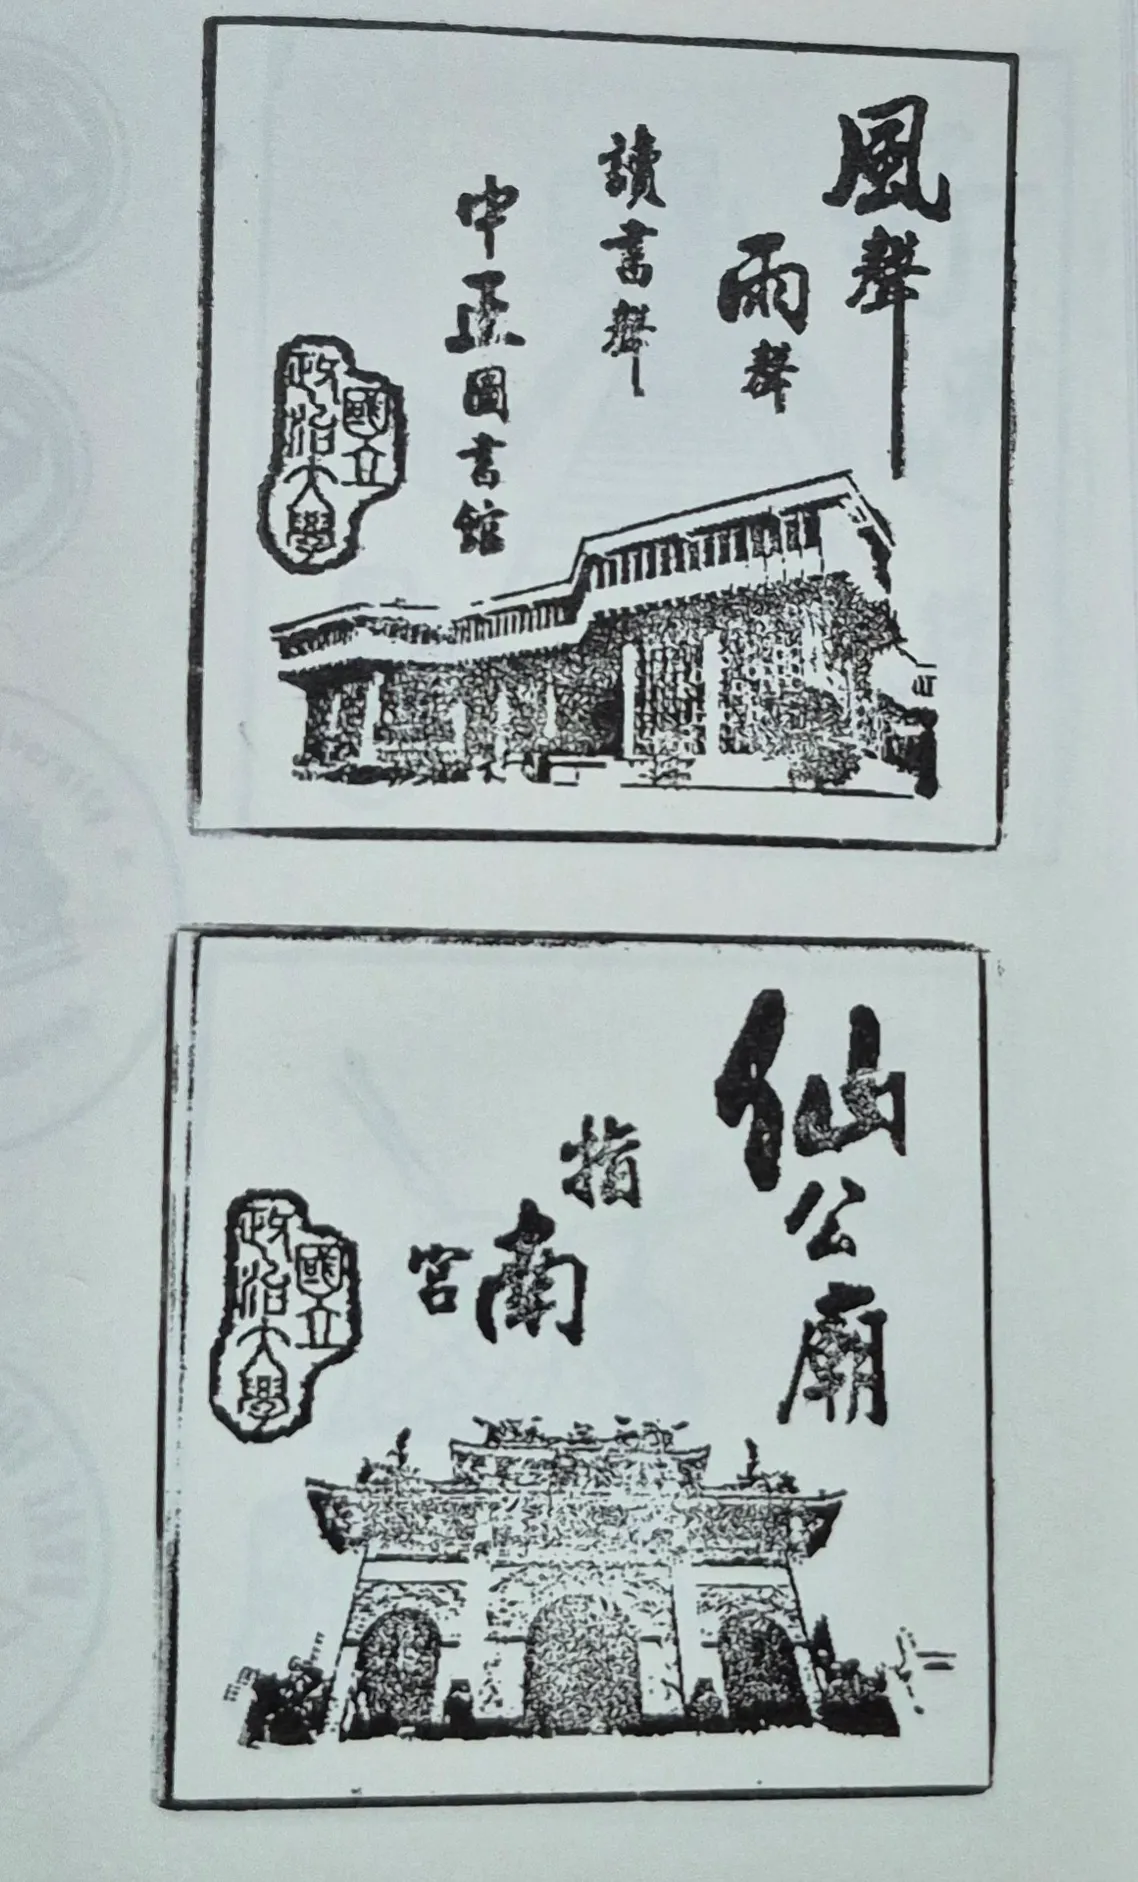 風聲
雨聲
讀書聲
中正圖書館
國立
政治大學
仙公廟
指南宮
國立
政治大學